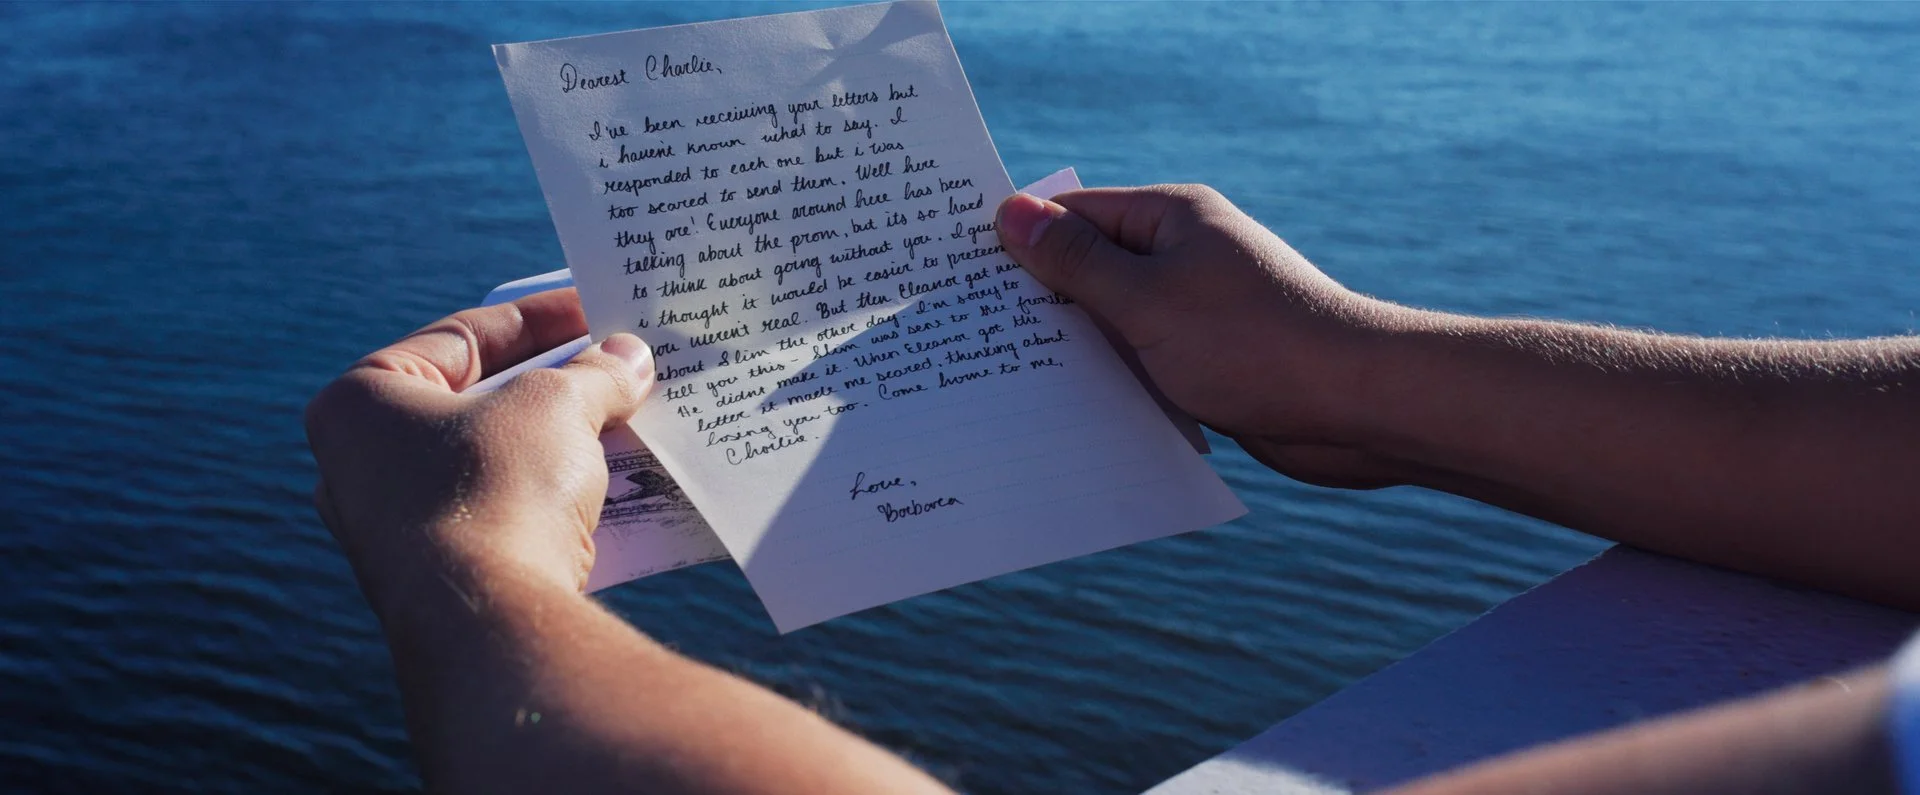 Dearest Charlie,
I've been receiving your letters but
i haven't known what to say. I
responded to each one but i was
too scared to send them. Well here
they are! Everyone around here has been
talking about the prom, but its so hard
to think about going without you. I gues
i thought it would be easier to preten
you weren't real. But then Eleanor got new
about Slim the other day. I'm sorry to
tell you this - Slim was sent to the frontl
He didnt make it. When Eleanor got the
letter it made me scared, thinking about
losing you too. Come home to me,
Charlie.
Love,
Barbara